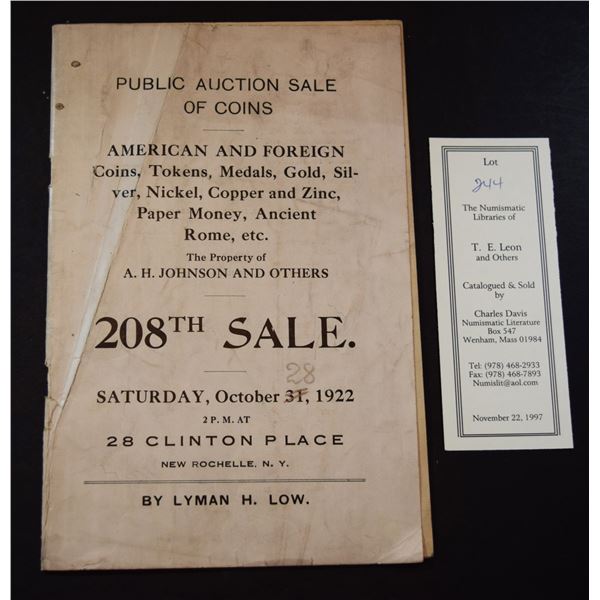 PUBLIC AUCTION SALE
OF COINS
AMERICAN AND FOREIGN
Coins, Tokens, Medals, Gold, Sil-
ver, Nickel, Copper and Zinc,
Paper Money, Ancient
Rome, etc.
The Property of
A. H. JOHNSON AND OTHERS
208TH SALE.
28
SATURDAY, October 31, 1922
2 P. M. AT
28 CLINTON PLACE
NEW ROCHELLE, N. Y.
BY LYMAN H. LOW.
Lot
244
The Numismatic
Libraries of
T. E. Leon
and Others
Catalogued & Sold
by
Charles Davis
Numismatic Literature
Box 547
Wenham, Mass 01984
Tel: (978) 468-2933
Fax: (978) 468-7893
Numislit@aol.com
November 22, 1997